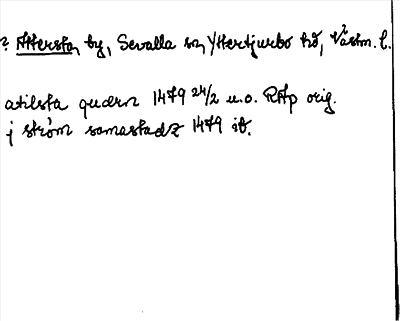 ? Attersta, by, Sevalla sn, Yttertjurbo hd, Västm. l.
atilsta quern 1479 24/2 u.o. RAp orig.
j ström samastadz 1479 ib.